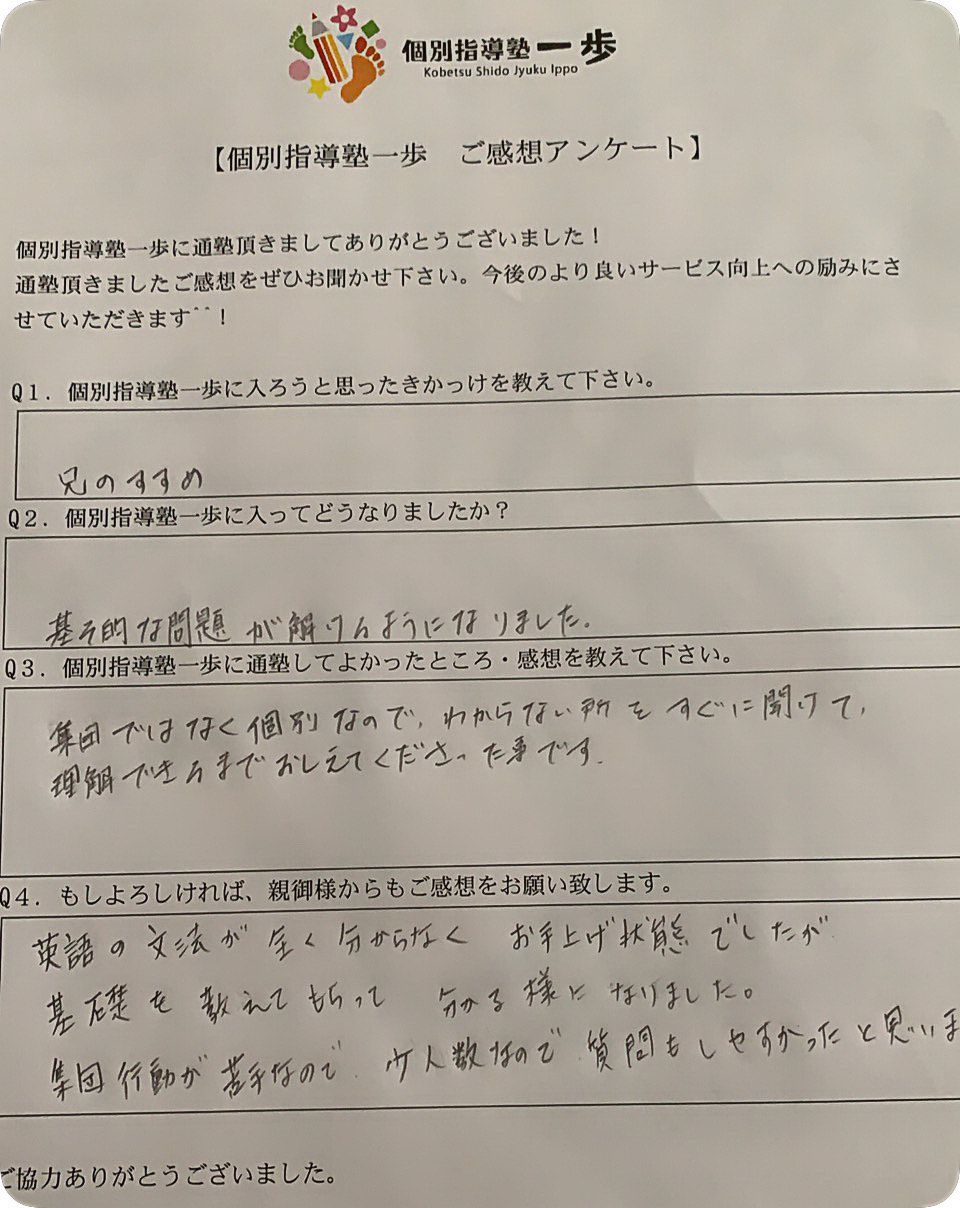 個別指導塾一歩
Kobetsu Shido Jyuku Ippo
【個別指導塾一歩　ご感想アンケート】
個別指導塾一歩に通塾頂きましてありがとうございました！
通塾頂きましたご感想をぜひお聞かせ下さい。今後のより良いサービス向上への励みにさ
せていただきます^^！
Q1．個別指導塾一歩に入ろうと思ったきかっけを教えて下さい。
兄のすすめ
Q2．個別指導塾一歩に入ってどうなりましたか？
基そ的な問題が解けるようになりました。
Q3．個別指導塾一歩に通塾してよかったところ・感想を教えて下さい。
集団ではなく個別なので、わからない所をすぐに聞けて、
理解できるまでおしえてくださった事です.
Q4．もしよろしければ、親御様からもご感想をお願い致します。
英語の文法が全く分からなく　お手上げ状態でしたが
基礎を教えてもらって　分かる様になりました。
集団行動が苦手なので、少人数なので質問もしやすかったと思いま
ご協力ありがとうございました。